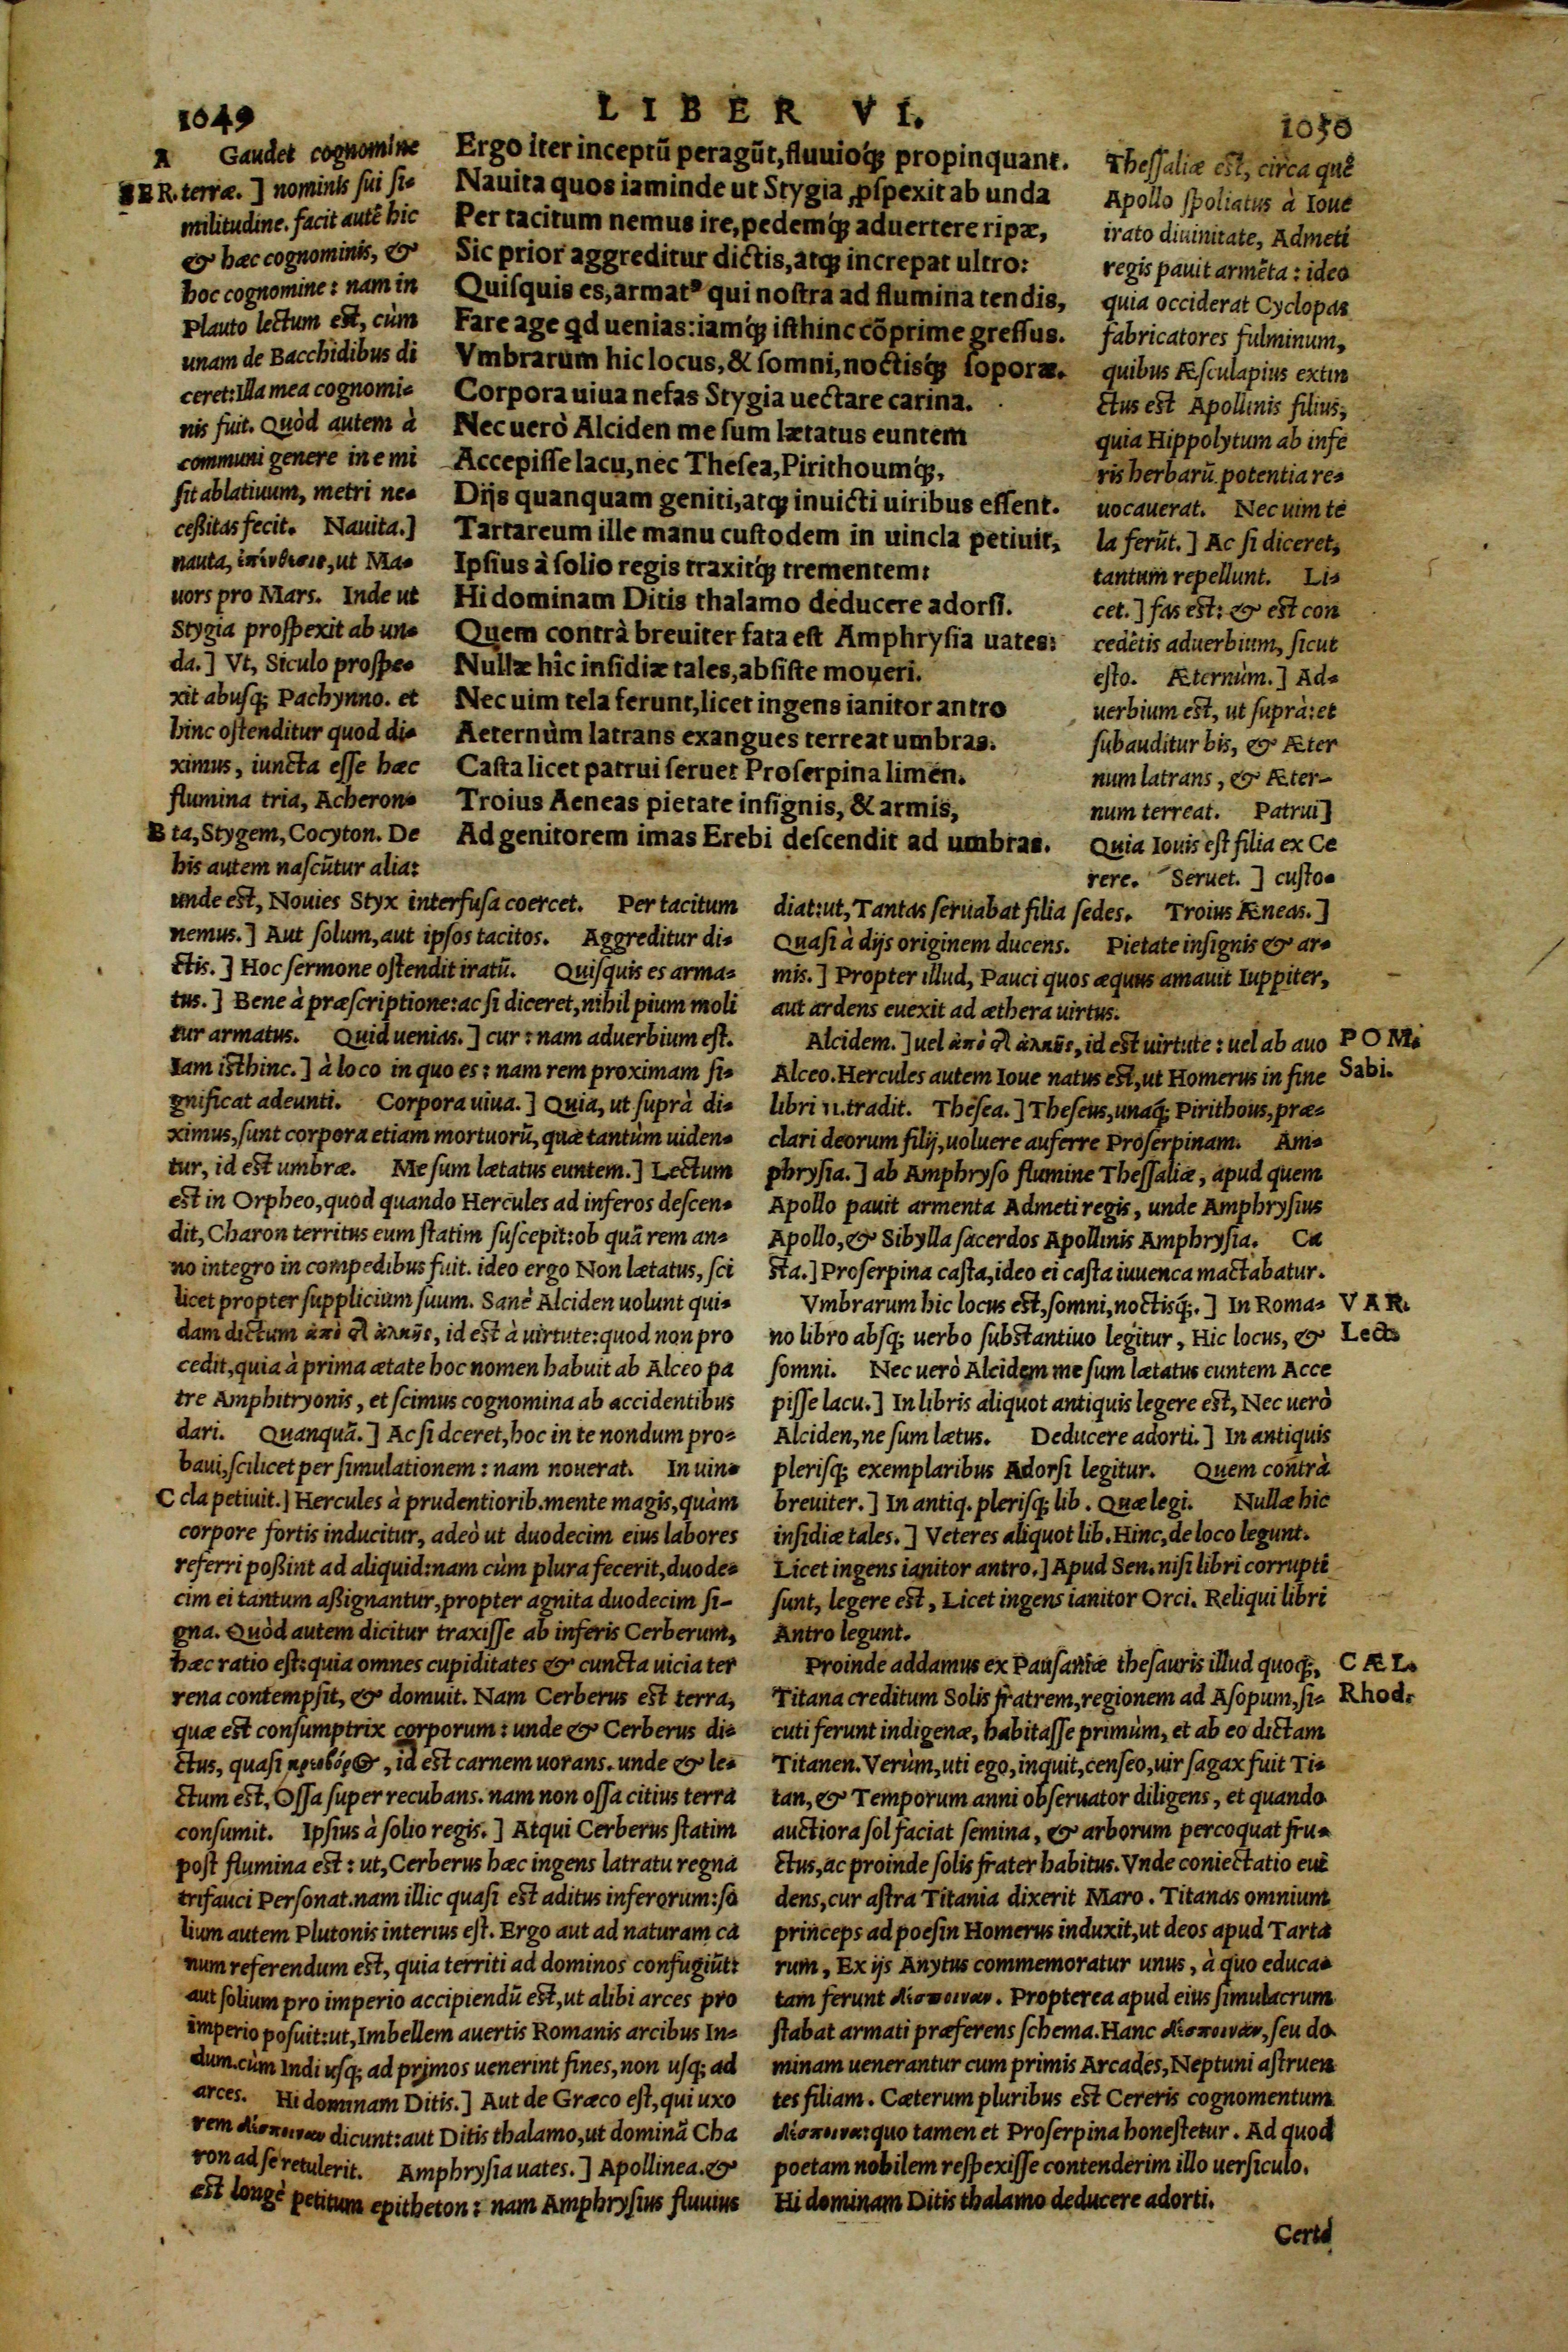 1049
LIBER VI.
1050
Ergo iter inceptũ peragũt, fluuioq́; propinquant.
Nauita quos iaminde ut Stygia ꝓspexit ab unda
Per tacitum nemus ire, pedemq́; aduertere ripæ,
Sic prior aggreditur dictis, atq; increpat ultro:
Quisquis es, armatꝰ qui nostra ad flumina tendis,
Fare age qd uenias: iamq́; isthinc cõprime gressus.
Vmbrarum hic locus, & somni, noctisq́; soporæ.
Corpora uiua nefas Stygia uectare carina.
Nec uerò Alciden me sum lætatus euntem
Accepisse lacu, nec Thesea, Pirithoumq́;,
Dijs quanquam geniti, atq; inuicti uiribus essent.
Tartareum ille manu custodem in uincla petiuit,
Ipsius à solio regis traxitq́; trementem:
Hi dominam Ditis thalamo deducere adorsi.
Quem contrà breuiter fata est Amphrysia uates:
Nullæ hîc insidiæ tales, absiste moueri.
Nec uim tela ferunt, licet ingens ianitor antro
Aeternùm latrans exangues terreat umbras.
Casta licet patrui seruet Proserpina limen.
Troius Aeneas pietate insignis, & armis,
Ad genitorem imas Erebi descendit ad umbras.
A Gaudet cognomine
SER. terræ.] nominis sui si-
militudine. facit autẽ hic
& hæc cognominis, &
hoc cognomine: nam in
Plauto lectum est, cùm
unam de Bacchidibus di
ceret: Illa mea cognomi-
nis fuit. Quòd autem à
communi genere in e mi
sit ablatiuum, metri ne-
ceßitas fecit. Nauita.]
nauta, ἐπένθεσις, ut Ma-
uors pro Mars. Inde ut
Stygia prospexit ab un-
da.] Vt, Siculo prospe-
xit abusq; Pachynno. et
hinc ostenditur quod di-
ximus, iuncta esse hæc
flumina tria, Acheron-
B ta, Stygem, Cocyton. De
his autem nascũtur alia:
unde est, Nouies Styx interfusa coercet. Per tacitum
nemus.] Aut solum, aut ipsos tacitos. Aggreditur di-
ctis.] Hoc sermone ostendit iratũ. Quisquis es arma-
tus.] Bene à præscriptione: ac si diceret, nihil pium moli
tur armatus. Quid uenias.] cur: nam aduerbium est.
Iam isthinc.] à loco in quo es: nam rem proximam si-
gnificat adeunti. Corpora uiua.] Quia, ut suprà di-
ximus, sunt corpora etiam mortuorũ, quæ tantùm uiden-
tur, id est umbræ. Me sum lætatus euntem.] Lectum
est in Orpheo, quod quando Hercules ad inferos descen-
dit, Charon territus eum statim suscepit: ob quã rem an-
no integro in compedibus fuit. ideo ergo Non lætatus, sci
licet propter supplicium suum. Sanè Alciden uolunt qui-
dam dictum ἀπὸ τῆ ἀλκῆς, id est à uirtute: quod non pro
cedit, quia à prima ætate hoc nomen habuit ab Alceo pa
tre Amphitryonis, et scimus cognomina ab accidentibus
dari. Quanquã.] Ac si dceret, hoc in te nondum pro-
baui, scilicet per simulationem: nam nouerat. In uin-
C cla petiuit.] Hercules à prudentiorib. mente magis, quàm
corpore fortis inducitur, adeò ut duodecim eius labores
referri poßint ad aliquid: nam cùm plura fecerit, duode-
cim ei tantum aßignantur, propter agnita duodecim si-
gna. Quòd autem dicitur traxisse ab inferis Cerberum,
hæc ratio est: quia omnes cupiditates & cuncta uicia ter
rena contempsit, & domuit. Nam Cerberus est terra,
quæ est consumptrix corporum: unde & Cerberus di-
ctus, quasi κρεοβόρος, id est carnem uorans. unde & le-
ctum est, Ossa super recubans. nam non ossa citius terra
consumit. Ipsius à solio regis.] Atqui Cerberus statim
post flumina est: ut, Cerberus hæc ingens latratu regna
trifauci Personat. nam illic quasi est aditus inferorum: so
lium autem Plutonis interius est. Ergo aut ad naturam ca
num referendum est, quia territi ad dominos confugiũt:
aut solium pro imperio accipiendũ est, ut alibi arces pro
imperio posuit: ut, Imbellem auertis Romanis arcibus In-
dum. cùm Indi usq; ad primos uenerint fines, non usq; ad
arces. Hi dominam Ditis.] Aut de Græco est, qui uxo
rem δέσποιναν dicunt: aut Ditis thalamo, ut dominã Cha
ron ad se retulerit. Amphrysia uates.] Apollinea. &
est longè petitum epitheton: nam Amphrysius fluuius
Thessaliæ est, circa quẽ
Apollo spoliatus à Ioue
irato diuinitate, Admeti
regis pauit armẽta: ideo
quia occiderat Cyclopas
fabricatores fulminum,
quibus Æsculapius extin
ctus est Apollinis filius,
quia Hippolytum ab infe
ris herbarũ potentia re-
uocauerat. Nec uim te
la ferũt.] Ac si diceret,
tantum repellunt. Li-
cet.] fas est: & est con
cedẽtis aduerbium, sicut
esto. Æternùm.] Ad-
uerbium est, ut suprà: et
subauditur bis, & Æter
num latrans, & Æter-
num terreat. Patrui]
Quia Iouis est filia ex Ce
rere. Seruet.] custo-
diat: ut, Tantas seruabat filia sedes. Troius Æneas.]
Quasi à dijs originem ducens. Pietate insignis & ar-
mis.] Propter illud, Pauci quos æquus amauit Iuppiter,
aut ardens euexit ad æthera uirtus.
Alcidem.] uel ἀπὸ τῆ ἀλκῆς, id est uirtute: uel ab auo
POM.
Sabi.
Alceo. Hercules autem Ioue natus est, ut Homerus in fine
libri 11. tradit. Thesea.] Theseus, unaq́; Pirithous, præ-
clari deorum filij, uoluere auferre Proserpinam. Am-
phrysia.] ab Amphryso flumine Thessaliæ, apud quem
Apollo pauit armenta Admeti regis, unde Amphrysius
Apollo, & Sibylla sacerdos Apollinis Amphrysia. Ca
sta.] Proserpina casta, ideo ei casta iuuenca mactabatur.
Vmbrarum hic locus est, somni, noctisq́;.] In Roma-
VAR.
Lect.
no libro absq; uerbo substantiuo legitur, Hic locus, &
somni. Nec uerò Alcidem me sum lætatus euntem Acce
pisse lacu.] In libris aliquot antiquis legere est, Nec uerò
Alciden, ne sum lætus. Deducere adorti.] In antiquis
plerisq; exemplaribus Adorsi legitur. Quem contrà
breuiter.] In antiq. plerisq; lib. Quæ legi. Nullæ hic
insidiæ tales.] Veteres aliquot lib. Hinc, de loco legunt.
Licet ingens ianitor antro.] Apud Sen. nisi libri corrupti
sunt, legere est, Licet ingens ianitor Orci. Reliqui libri
Antro legunt.
Proinde addamus ex Pausaniæ thesauris illud quoq́;,
CÆL.
Rhod.
Titana creditum Solis fratrem, regionem ad Asopum, si-
cuti ferunt indigenæ, habitasse primùm, et ab eo dictam
Titanen. Verùm, uti ego, inquit, censeo, uir sagax fuit Ti-
tan, & Temporum anni obseruator diligens, et quando
auctiora sol faciat semina, & arborum percoquat fru-
ctus, ac proinde solis frater habitus. Vnde coniectatio euĩ
dens, cur astra Titania dixerit Maro. Titanas omnium
princeps ad poesin Homerus induxit, ut deos apud Tarta
rum, Ex ijs Anytus commemoratur unus, à quo educa-
tam ferunt δέσποιναν. Propterea apud eius simulacrum
stabat armati præferens schema. Hanc δέσποιναν, seu do
minam uenerantur cum primis Arcades, Neptuni astruen
tes filiam. Cæterum pluribus est Cereris cognomentum
δέσποινα: quo tamen et Proserpina honestetur. Ad quod
poetam nobilem respexisse contenderim illo uersiculo.
Hi dominam Ditis thalamo deducere adorti.
Certè